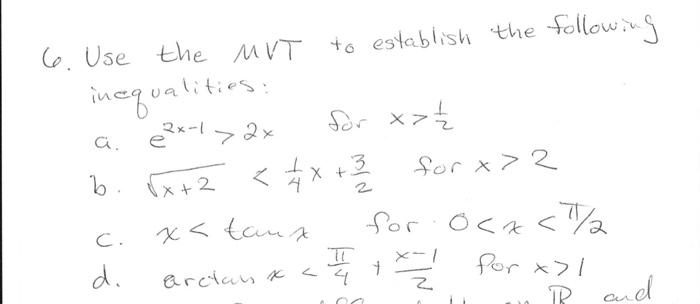 6. Use the MVT to establish the following
inequalities:
a. e^{2x-1} > 2x for x > 1/2
b. √(x+2) < 1/4 x + 3/2 for x > 2
c. x < tan x for 0 < x < π/2
d. arctan x < π/4 + (x-1)/2 for x > 1
ℝ and